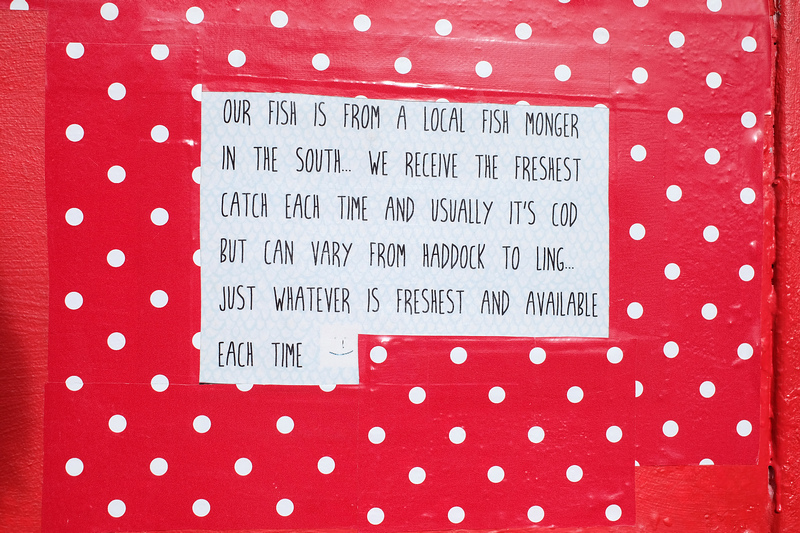 OUR FISH IS FROM A LOCAL FISH MONGER
IN THE SOUTH... WE RECEIVE THE FRESHEST
CATCH EACH TIME AND USUALLY IT'S COD
BUT CAN VARY FROM HADDOCK TO LING...
JUST WHATEVER IS FRESHEST AND AVAILABLE
EACH TIME